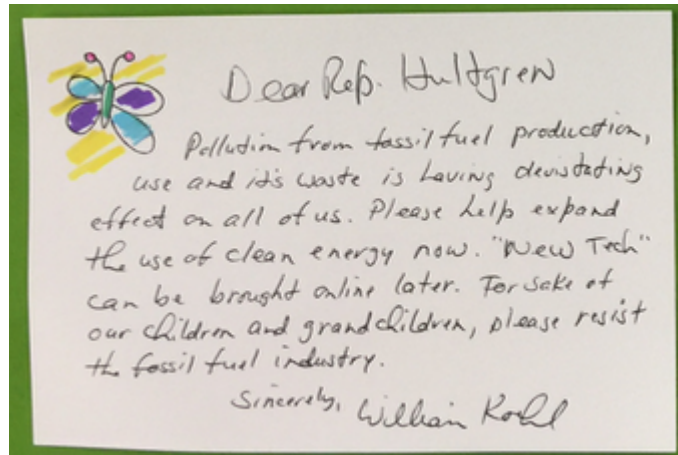 Dear Rep. Hultgren
Pollution from fossil fuel production,
use and it's waste is having devistating
effect on all of us. Please help expand
the use of clean energy now. "New Tech"
can be brought online later. For sake of
our children and grandchildren, please resist
the fossil fuel industry.
Sincerely, William